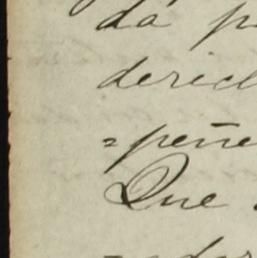 da p
derech
=peñe
Que
=ador